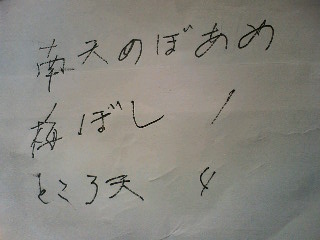 南天のぼあめ
梅ぼし 1
ところ天 4